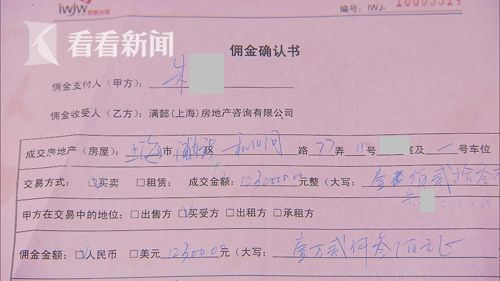 iwjw
看看新闻
编号：IWJ- 10005514
佣金确认书
佣金支付人（甲方）：朱
佣金收受人（乙方）：满懿(上海)房地产咨询有限公司
成交房地产（房屋）：上海市浦东 区 路 77 弄 11 号 室及 一 号车位
交易方式：☑买卖 □租赁； 成交金额：1231000.00 元整（大写：壹 佰贰拾叁万
甲方在交易中的地位：□出售方 ☑买受方 □出租方 □承租方
佣金金额：☑人民币 □美元 12300.00 元（大写：壹万贰仟叁百元正